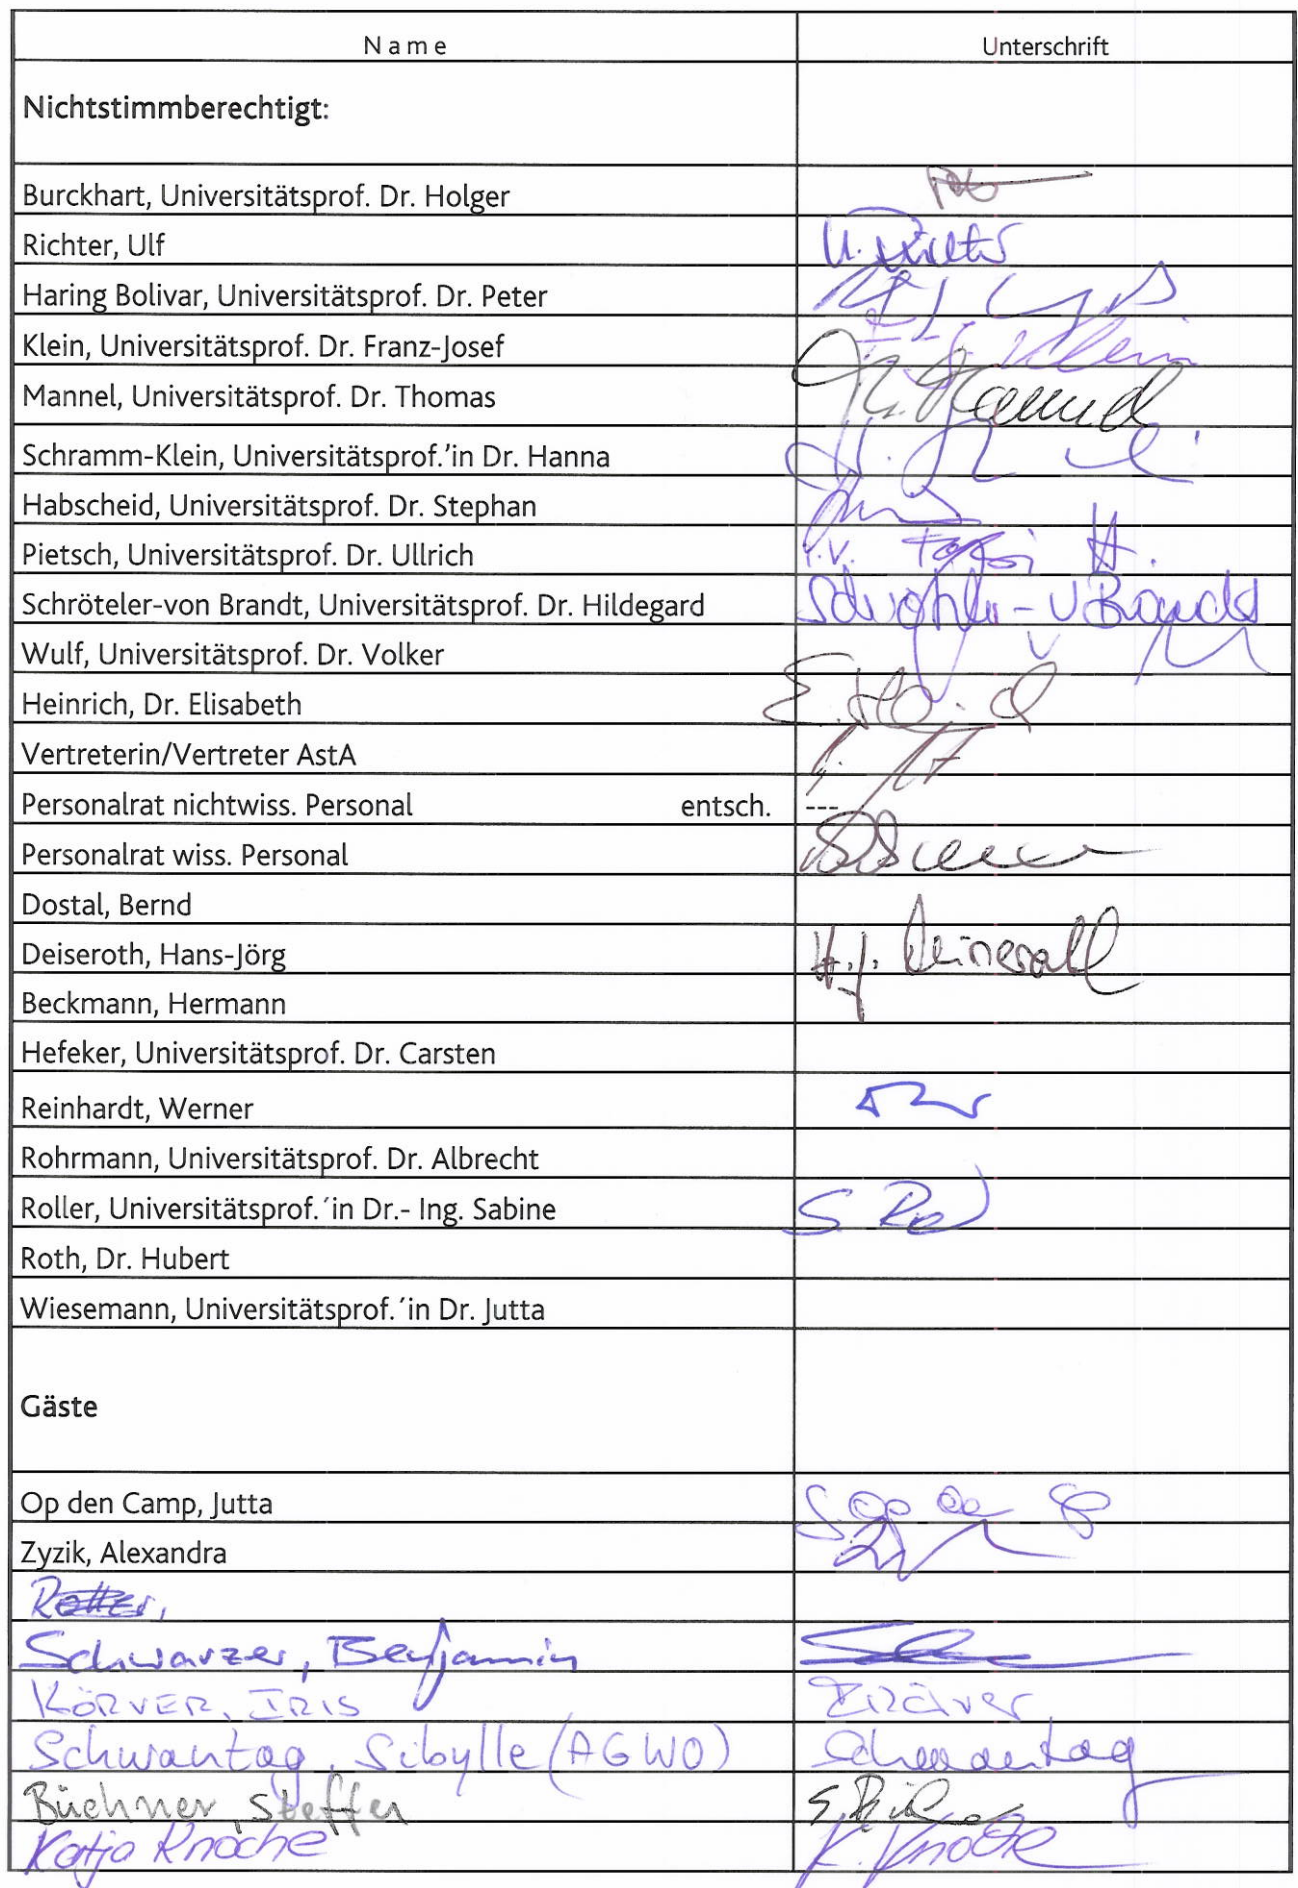 Name Unterschrift
Nichtstimmberechtigt:
Burckhart, Universitätsprof. Dr. Holger
Richter, Ulf
Haring Bolivar, Universitätsprof. Dr. Peter
Klein, Universitätsprof. Dr. Franz-Josef Klein
Mannel, Universitätsprof. Dr. Thomas
Schramm-Klein, Universitätsprof.'in Dr. Hanna
Habscheid, Universitätsprof. Dr. Stephan
Pietsch, Universitätsprof. Dr. Ullrich i.V.
Schröteler-von Brandt, Universitätsprof. Dr. Hildegard
Wulf, Universitätsprof. Dr. Volker
Heinrich, Dr. Elisabeth
Vertreterin/Vertreter AstA
Personalrat nichtwiss. Personal entsch. ---
Personalrat wiss. Personal
Dostal, Bernd
Deiseroth, Hans-Jörg H.J.
Beckmann, Hermann
Hefeker, Universitätsprof. Dr. Carsten
Reinhardt, Werner
Rohrmann, Universitätsprof. Dr. Albrecht
Roller, Universitätsprof.´in Dr.- Ing. Sabine
Roth, Dr. Hubert
Wiesemann, Universitätsprof.´in Dr. Jutta
Gäste
Op den Camp, Jutta
Zyzik, Alexandra
Schwarzer, Benjamin
KÖRVER, IRIS
Schwantag, Sibylle (AGWO) Schwantag
Büchner, Steffen
Katja Knoche K. Knoche